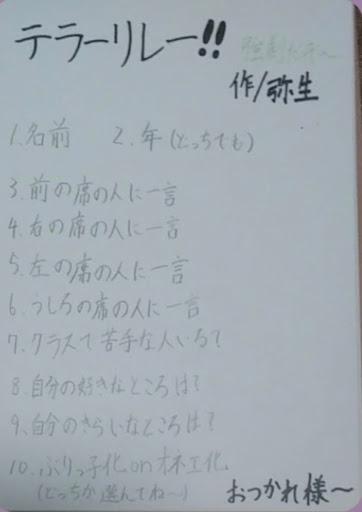 テラーリレー!!
強制だよ〜
作/弥生
1.名前 2.年(どっちでも)
3.前の席の人に一言
4.右の席の人に一言
5.左の席の人に一言
6.うしろの席の人に一言
7.クラスで苦手な人いる?
8.自分の好きなところは?
9.自分のきらいなところは?
10.ぶりっ子化onオネエ化
(どっちか選んでね〜)
おつかれ様〜